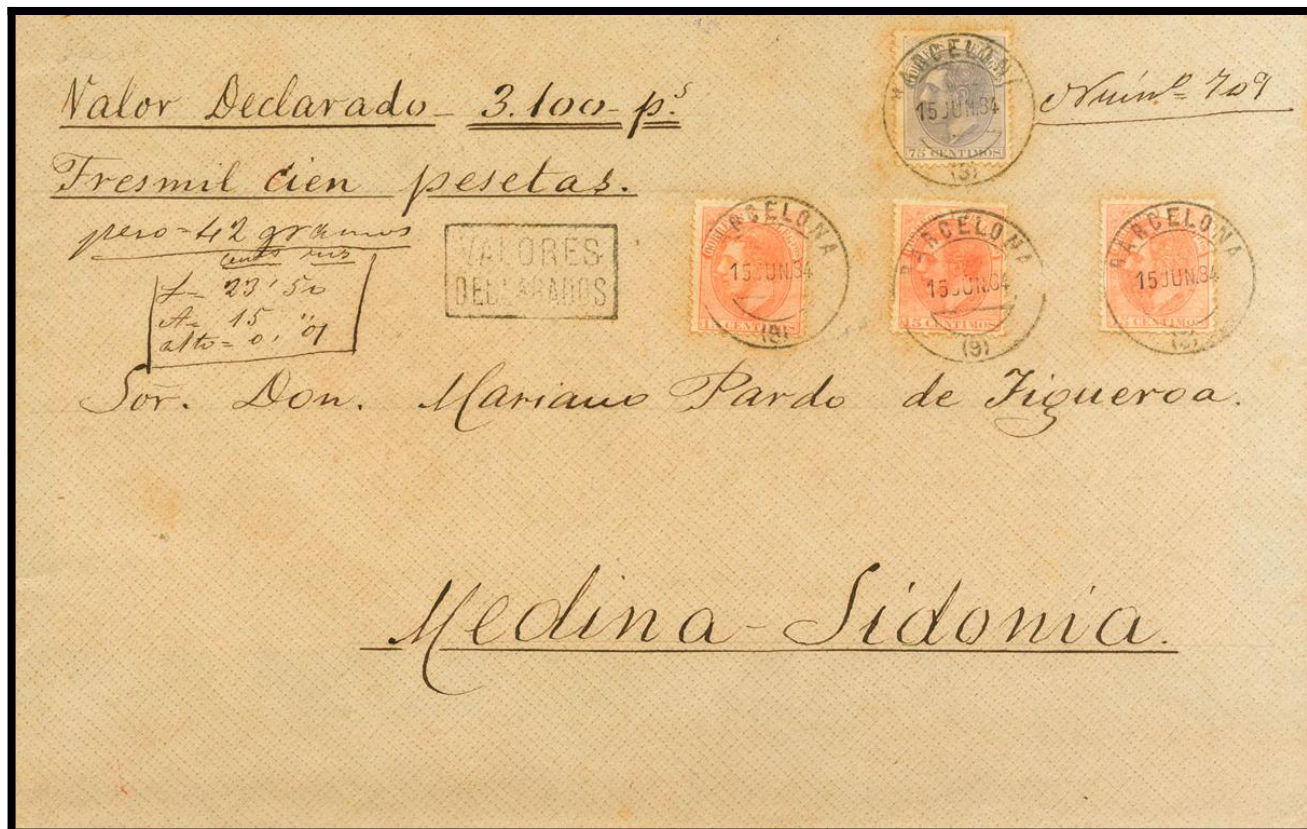 Valor Declarado - 3.100 - p.s
Númº 709
Tresmil cien pesetas.
peso = 42 gramos
L = 23'50
A = 15 "
alto = 0,01
VALORES
DECLARADOS
BARCELONA
15 JUN.84
75 CENTIMOS
(5)
BARCELONA
15 JUN.84
15 CENTIMOS
(9)
BARCELONA
15 JUN.84
15 CENTIMOS
(9)
BARCELONA
15 JUN.84
15 CENTIMOS
Sor. Don. Mariano Pardo de Figueroa.
Medina-Sidonia.